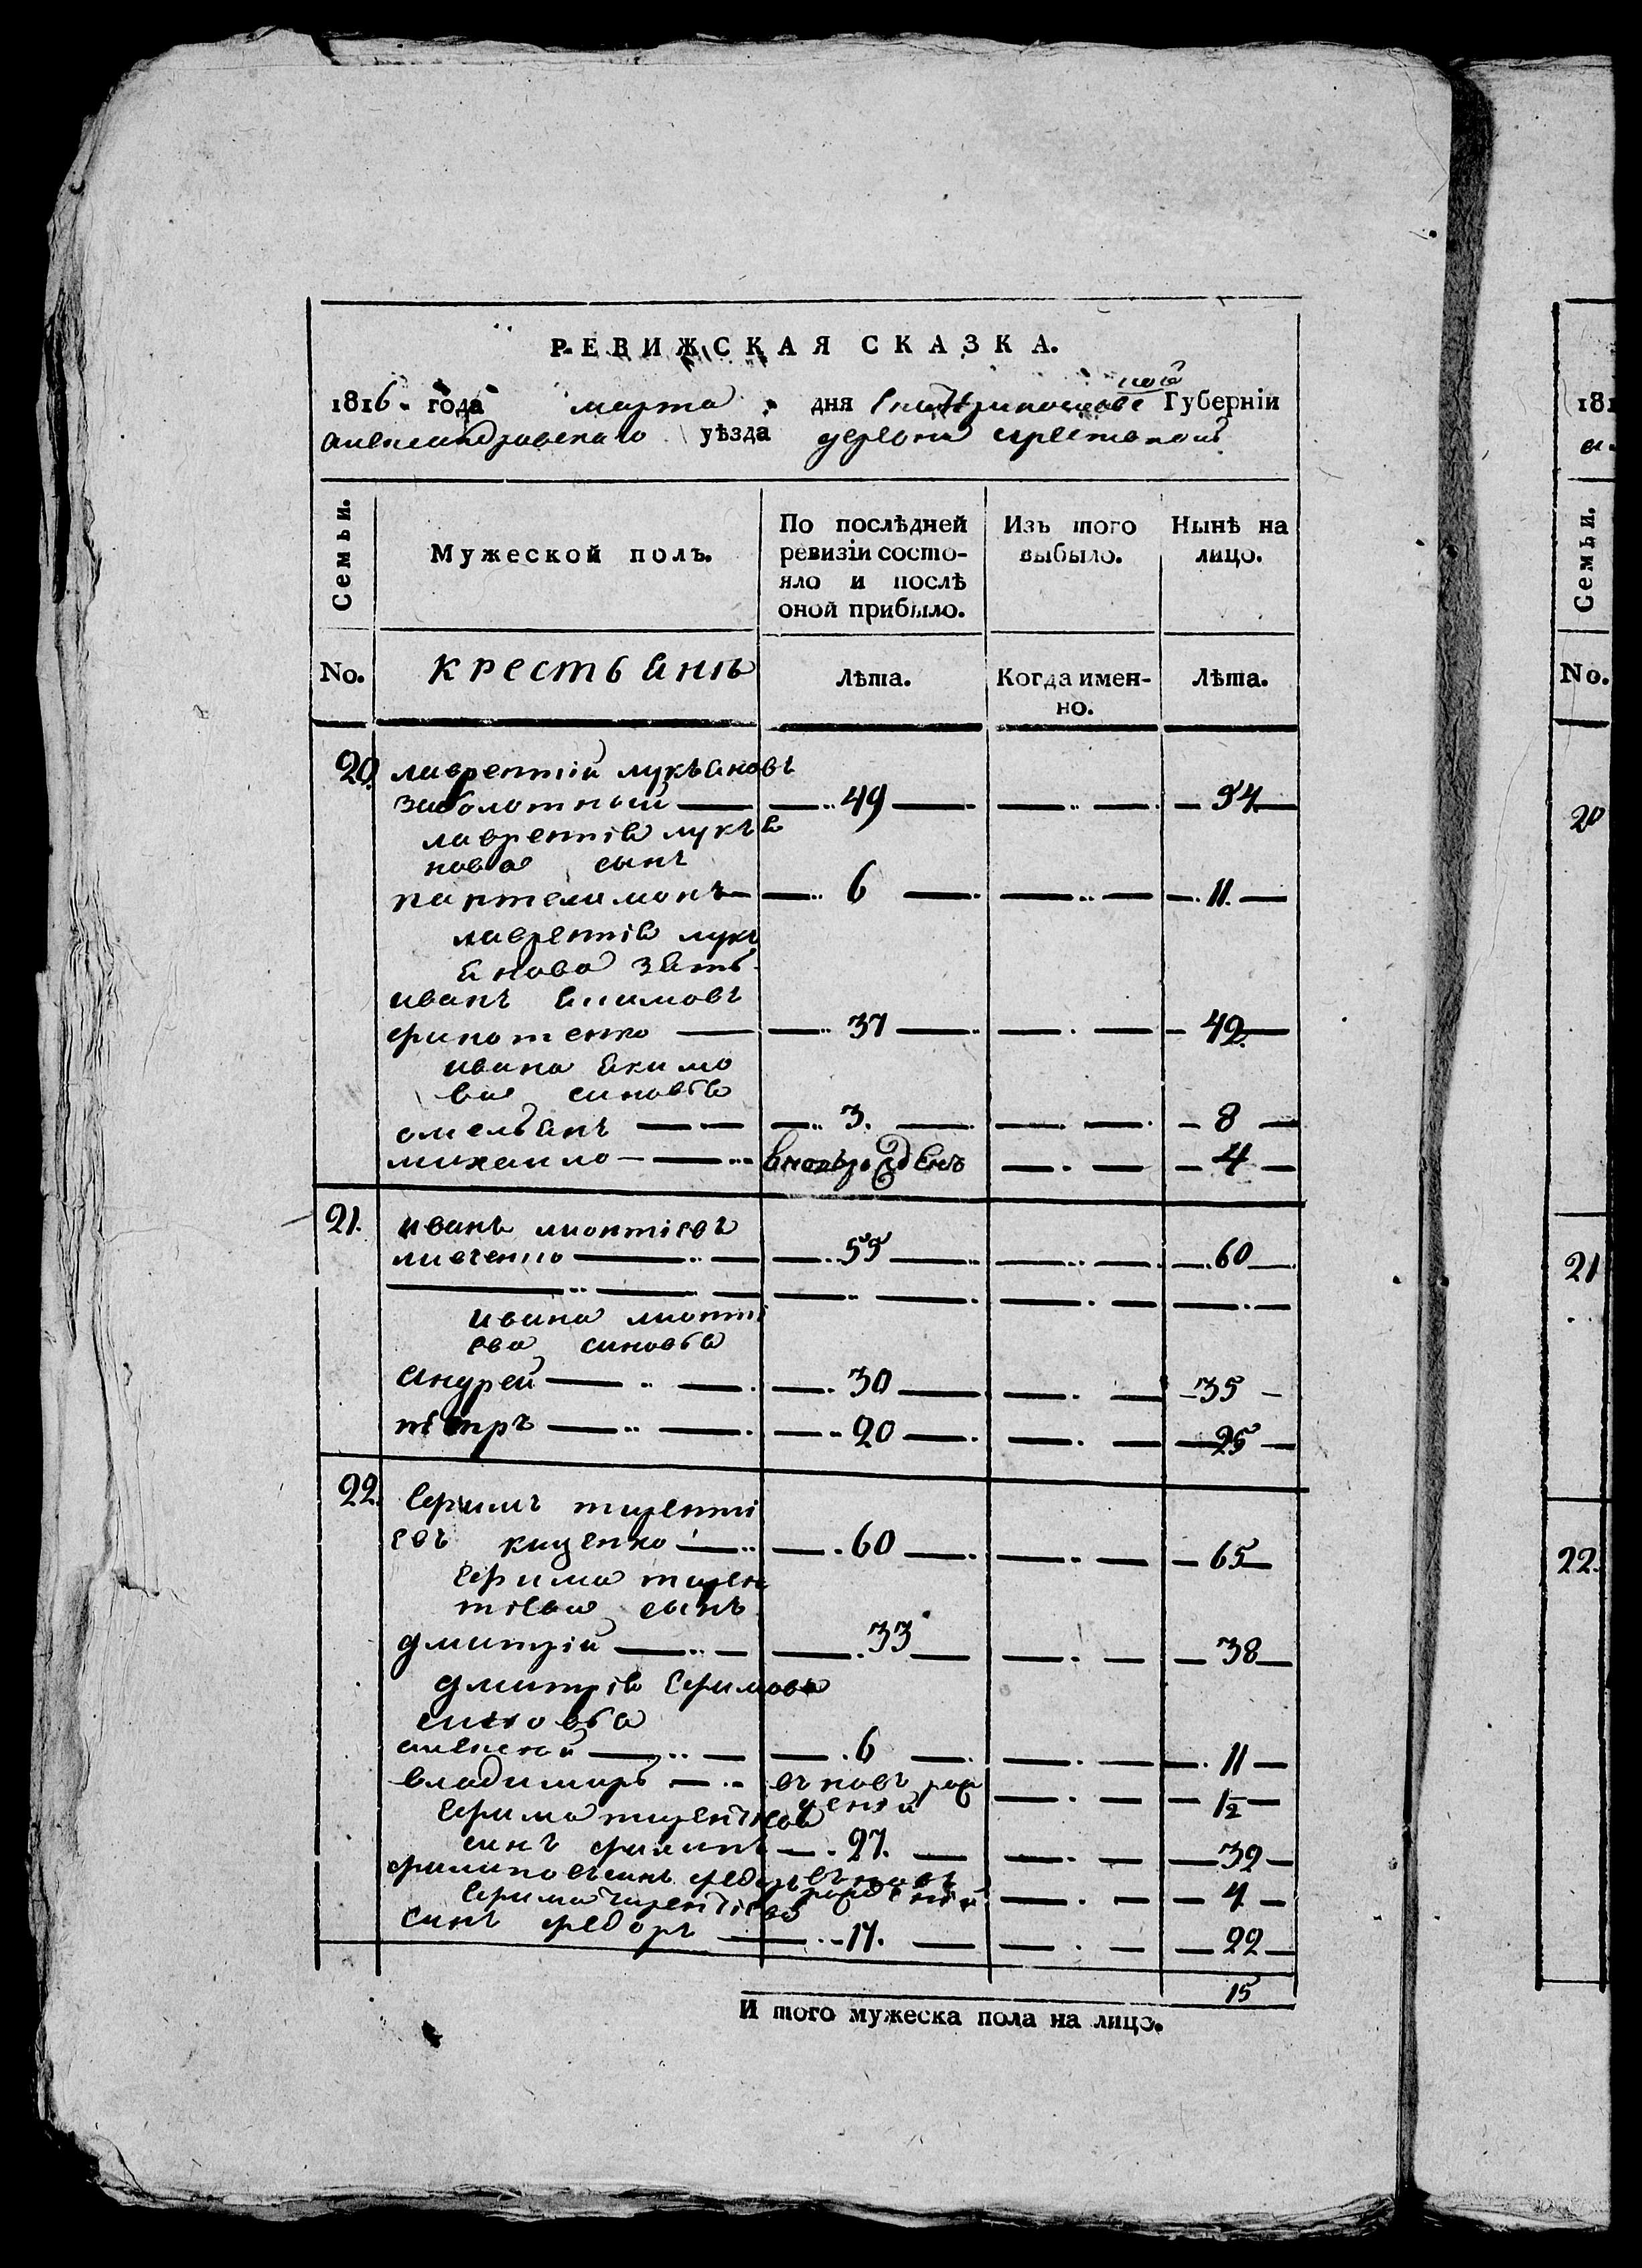 РЕВИЖСКАЯ СКАЗКА.
1816 года марта дня Екатеринославской Губерніи
александровскаго уѣзда деревни
Семьи.
Мужеской полъ.
По послѣдней ревизіи состояло и послѣ оной прибыло.
Изъ того выбыло.
Нынѣ на лицо.
No.
крестьянъ
Лѣта.
Когда именно.
Лѣта.
20. лаврентій лукъяновъ
заболотный 49 54
лаврентія лукъя
нова сынъ
пантелимонъ 6 11
лаврентія лукъ
янова зять
иванъ якимовъ
37 42
ивана якимо
ва синовья
омельянъ 3. 8
михаило вновьрожденъ 4
21. иванъ леонтіевъ
левченко 55 60
ивана леонті
ева синовья
андрей 30 35
петръ 20 25
22. ефимъ теренті
евъ киценко 60 65
ефима терен
тіева сынъ
дмитрій 33 38
дмитрія ефимова
синовья
алексей 6 11
владимиръ въновъ рож
деній 1/2
ефима терентіева
синъ филипъ 27. 32
филиповъ синъ федоръ въновь
рожденій 4
ефима терентіева
синъ федоръ 17. 22
15
И того мужеска пола на лицо.
181
Семьи.
No.
20
21
22.